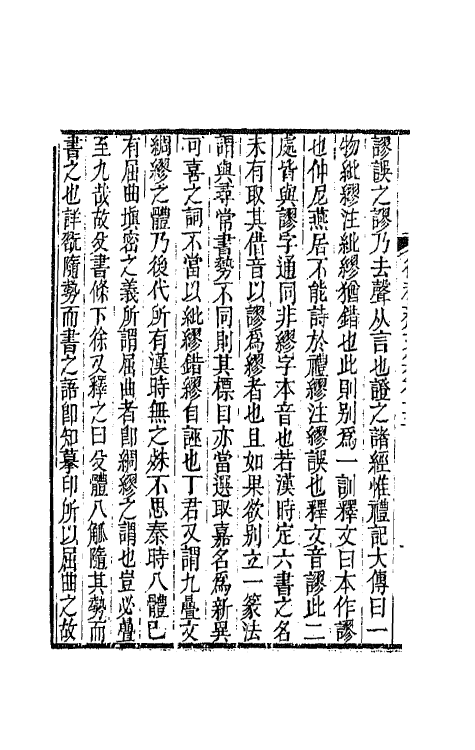 謬誤之謬乃去聲从言也證之諸經惟禮記大傳曰一
物紕繆注紕繆猶錯也此則别爲一訓釋文曰本作謬
也仲尼燕居不能詩於禮繆注繆誤也釋文音謬此二
處皆與謬字通同非繆字本音也若漢時定六書之名
未有取其借音以謬爲繆者也且如果欲别立一篆法
謂與尋常書勢不同則其標目亦當選取嘉名爲新異
可喜之詞不當以紕繆錯繆自誣也丁君又謂九疊文
綢繆之體乃後代所有漢時無之殊不思秦時八體已
有屈曲塡密之義所謂屈曲者卽綢繆之謂也豈必疊
至九哉故殳書條下徐又釋之曰殳體八觚隨其勢而
書之也詳翫隨勢而書之語卽知摹印所以屈曲之故